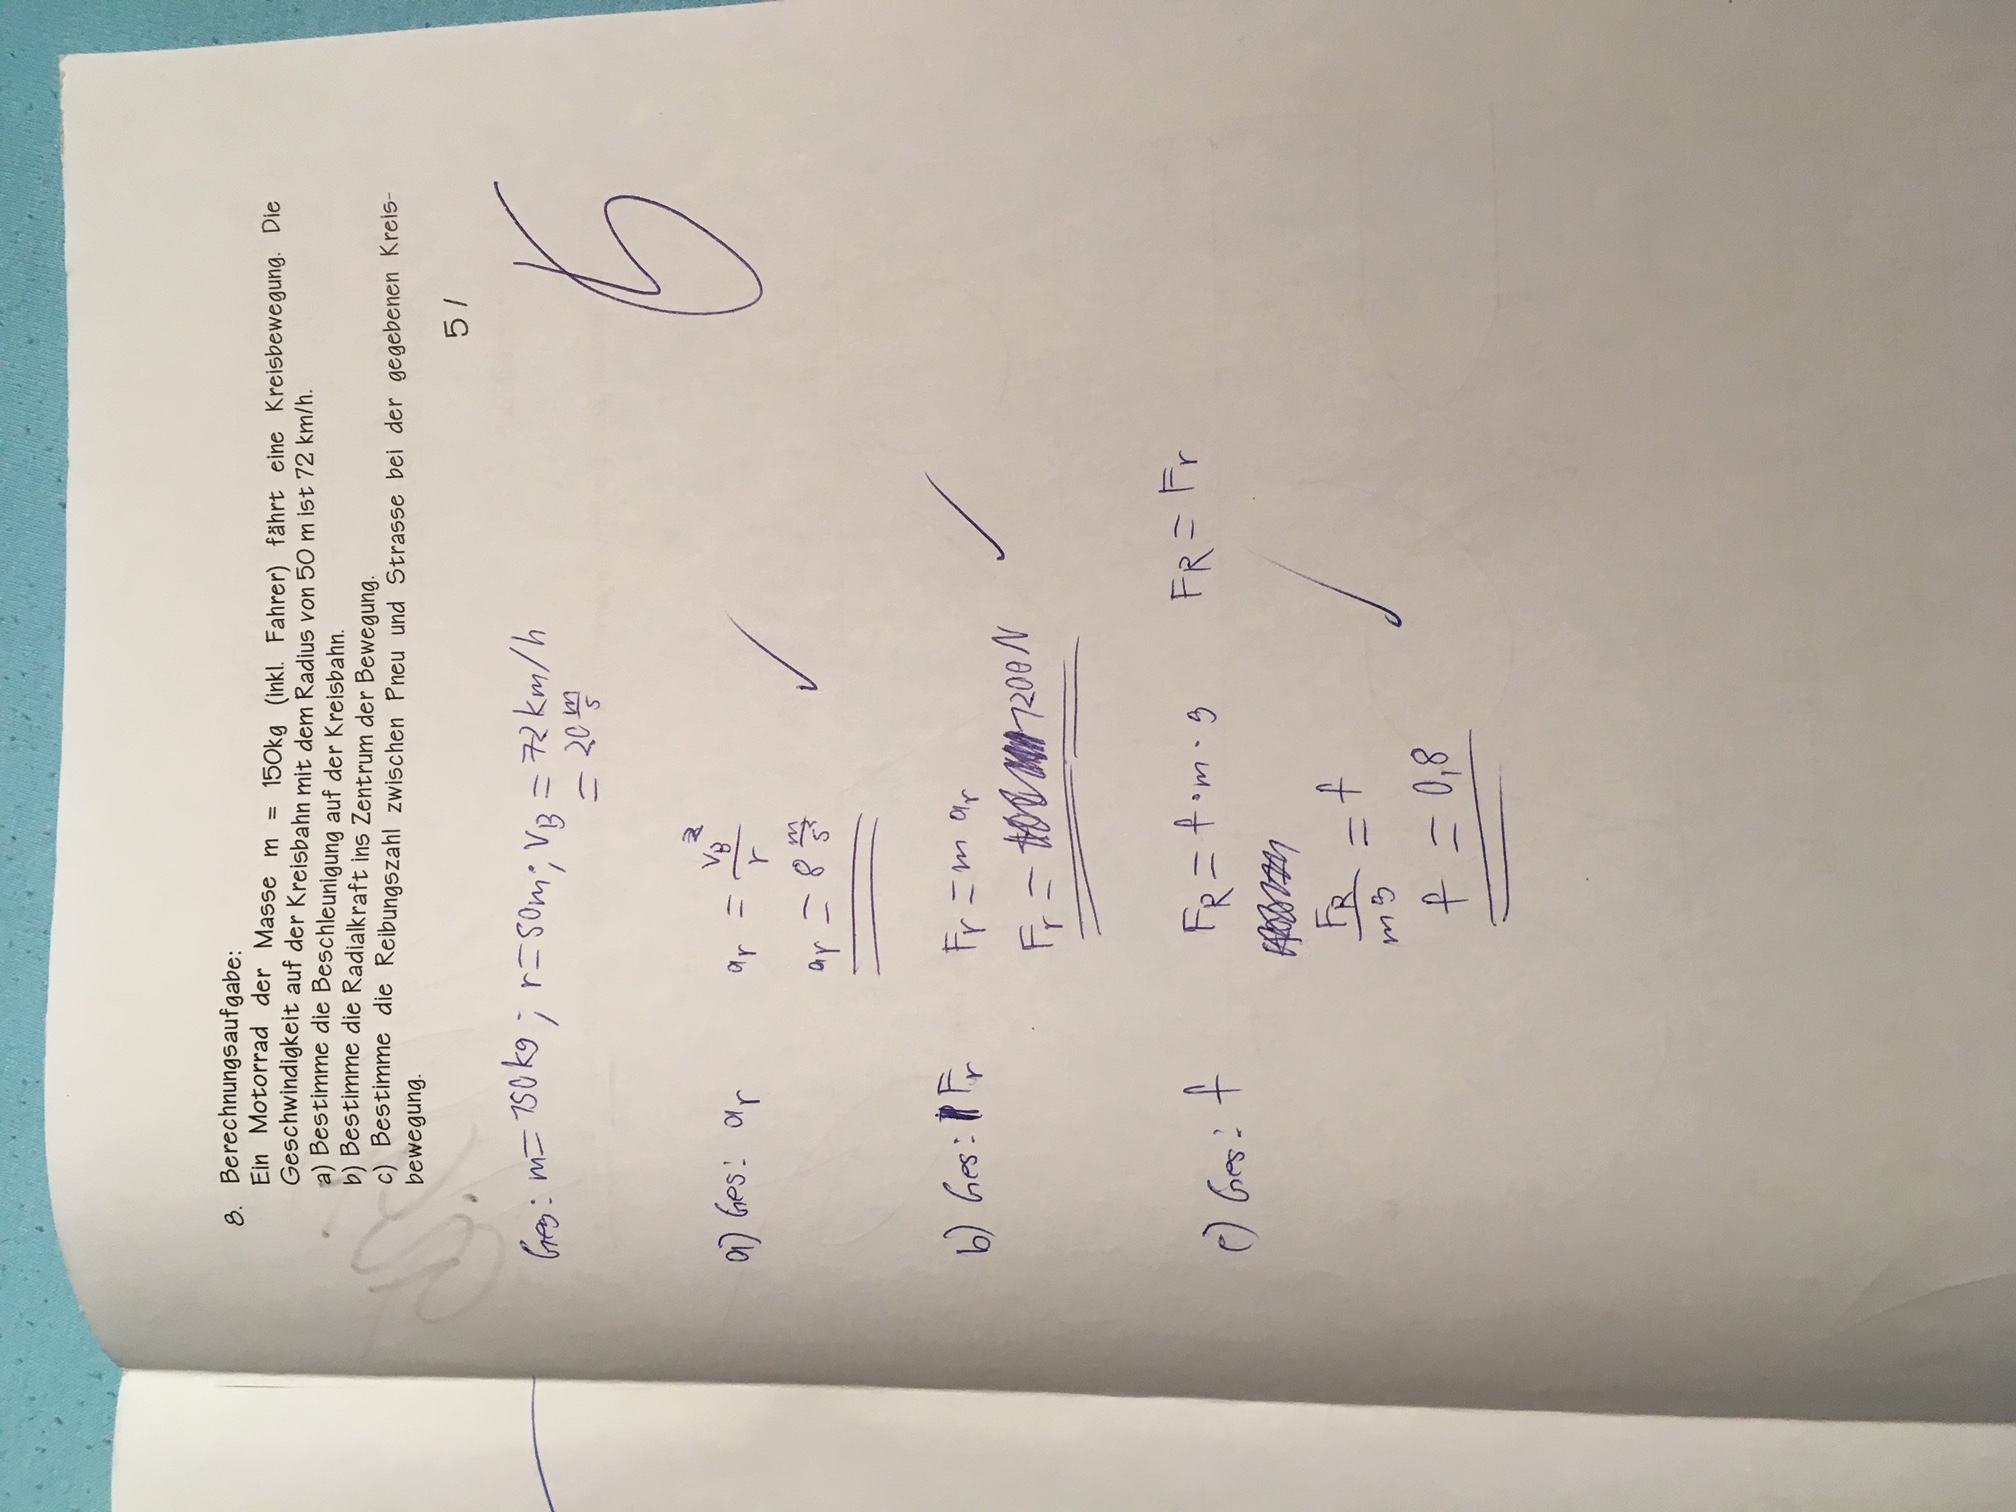 8. Berechnungsaufgabe:
Ein Motorrad der Masse m = 150kg (inkl. Fahrer) fährt eine Kreisbewegung. Die
Geschwindigkeit auf der Kreisbahn mit dem Radius von 50 m ist 72 km/h.
a) Bestimme die Beschleunigung auf der Kreisbahn.
b) Bestimme die Radialkraft ins Zentrum der Bewegung.
c) Bestimme die Reibungszahl zwischen Pneu und Strasse bei der gegebenen Kreis-
bewegung.
5 /
5
Geg: m = 150 kg ; r = 50m ; V_B = 72 km/h
= 20 m/s
a) Ges: a_r a_r = V_B²/r
a_r = 8 m/s²
b) Ges: F_r F_r = m a_r
F_r = 1200 N
c) Ges: f F_R = f · m · g F_R = F_r
F_R/mg = f
f = 0,8